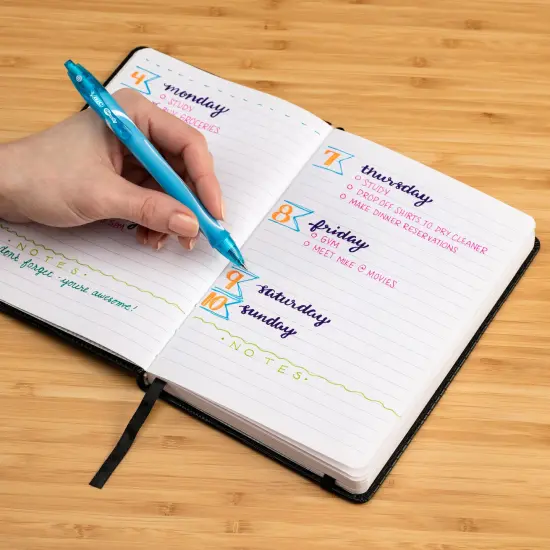 4 monday
STUDY
BUY GROCERIES
NOTES
don't forget - you're awesome!
7 thursday
STUDY
DROP OFF SHIRTS TO DRY CLEANER
MAKE DINNER RESERVATIONS
8 friday
GYM
MEET MIKE @ MOVIES
9 saturday
10 sunday
· NOTES ·